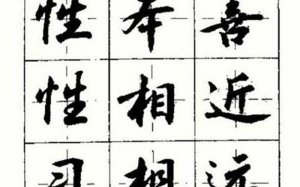 性本善
性相近
习相远